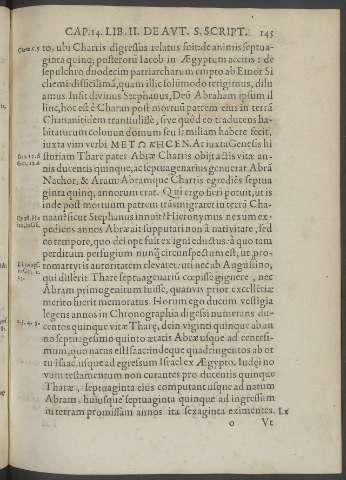 CAP. 14. LIB. II. DE AVT. S. SCRIPT. 145
to, ubi Charris digressus relatus
ginta quinq; posterorũ Iacob in Ægyptum accitis: de
sepulchro duodecim patriarcharum empto ab Emor Si
amus. Insit divinus Stephanus, Deũ Abraham ipsum il
linc, hoc est è Charan post mortuũ patrem eius in terrã
Chananitidem transtulisse, sive quòd eo traducens ha-
bitaturum colonum domum seu familiam habere fecit,
iuxta vim verbi ΜΕΤΩΚΗCΕΝ. At iuxta Genesis hi
storiam Thare pater Abræ Charris obijt actis vitæ an-
nis ducentis quinque, ac septuagenarius genuerat Abrã
Nachor, & Aram: Abramque Charris egrediẽs septua
ginta quinq; annorum erat. Qui ergo fieri potuit, ut is
inde post mortuum patrem trãsmigraret in terrã Cha-
naan? sicut Stephanus innuit? Hieronymus nesum ex-
pediens annos Abræ ait supputari non à nativitate, sed
eo tempore, quo dei ope fuit ex igni eductus. à quo tam
perditum perfugium nunq̃ circunspectum est, ut, pro-
tomartyris autoritatem elevaret. uti nec ab Augustino,
qui disserit Thare septuagenariũ cœpisse gignere, nec
Abram primogenitum fuisse, quamvis prior excellẽtiæ
merito fuerit memoratus. Horum ego ducum vestigia
legens annos in Chronographia digessi numerans du-
centos quinque vitæ Tharę, dein viginti quinque ab an
no septuagesimo quinto ætatis Abræ usque ad centesi-
mum, quo natus est Isaac: indeque quadringentos ab or
tu Isaac, usque ad egressum Israel ex Ægypto. Iudęi no
vum testamentum non curantes pro ducentis quinque
Tharæ, septuaginta eius computant usque ad natum
Abram, huiusque septuaginta quinque ad ingressum
in terram promissam annos ita sexaginta eximentes. Ex
o Vt